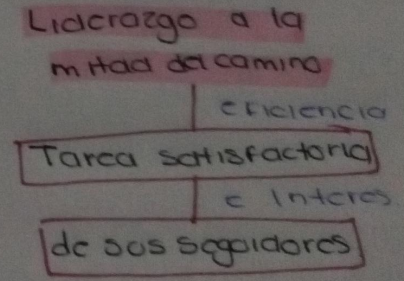 Liderazgo a la
mitad del camino
eficiencia
Tarea satisfactoria
e interes
de sus seguidores